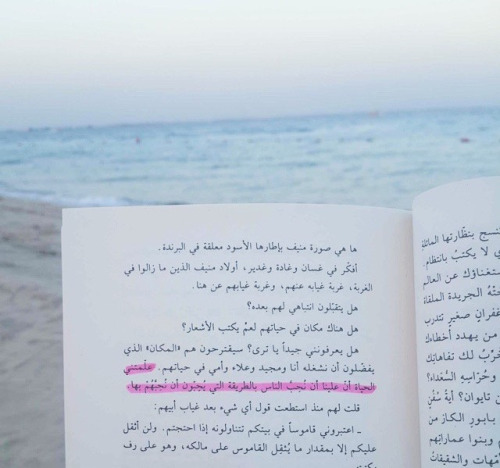 ها هي صورة منيف بإطارها الأسود معلقة في البرندة.
أفكّر في غسان وغادة وغدير، أولاد منيف الذين ما زالوا في
الغربة، غربة غيابه عنهم، وغربة غيابهم عن هنا.
هل يتقبّلون انتباهي لهم بعده؟
هل هناك مكان في حياتهم لعمٍّ يكتب الأشعار؟
هل يعرفونني جيداً يا ترى؟ سيقترحون هم «المكان» الذي
يفضّلون أن نشغله أنا ومجيد وعلاء وأمي في حياتهم. علّمتني
الحياة أنّ علينا أن نحبّ الناس بالطريقة التي يُحِبّون أن نُحِبَّهُمْ بها.
قلت لهم منذ استطعت قول أي شيء بعد غياب أبيهم:
ـ اعتبروني قاموساً في بيتكم تتناولونه إذا احتجتم. ولن أثقل
عليكم إلا بمقدار ما يُثقِل القاموس على مالكه، وهو على رف
نسج بنظّارتها المائلة
ي لا يكتبُ بانتظام.
ستغناؤك عن العالم
الجريدة الملقاة
صغيرٍ تتدرب
من يهدد أخطاءك
لك تفاهاتِك
وحُرّاسِهِ السُعداء؟
تايوان؟ أيةُ سُفُنٍ
بابور الكاز من
وبنوا عماراتِهم
والشقيقات